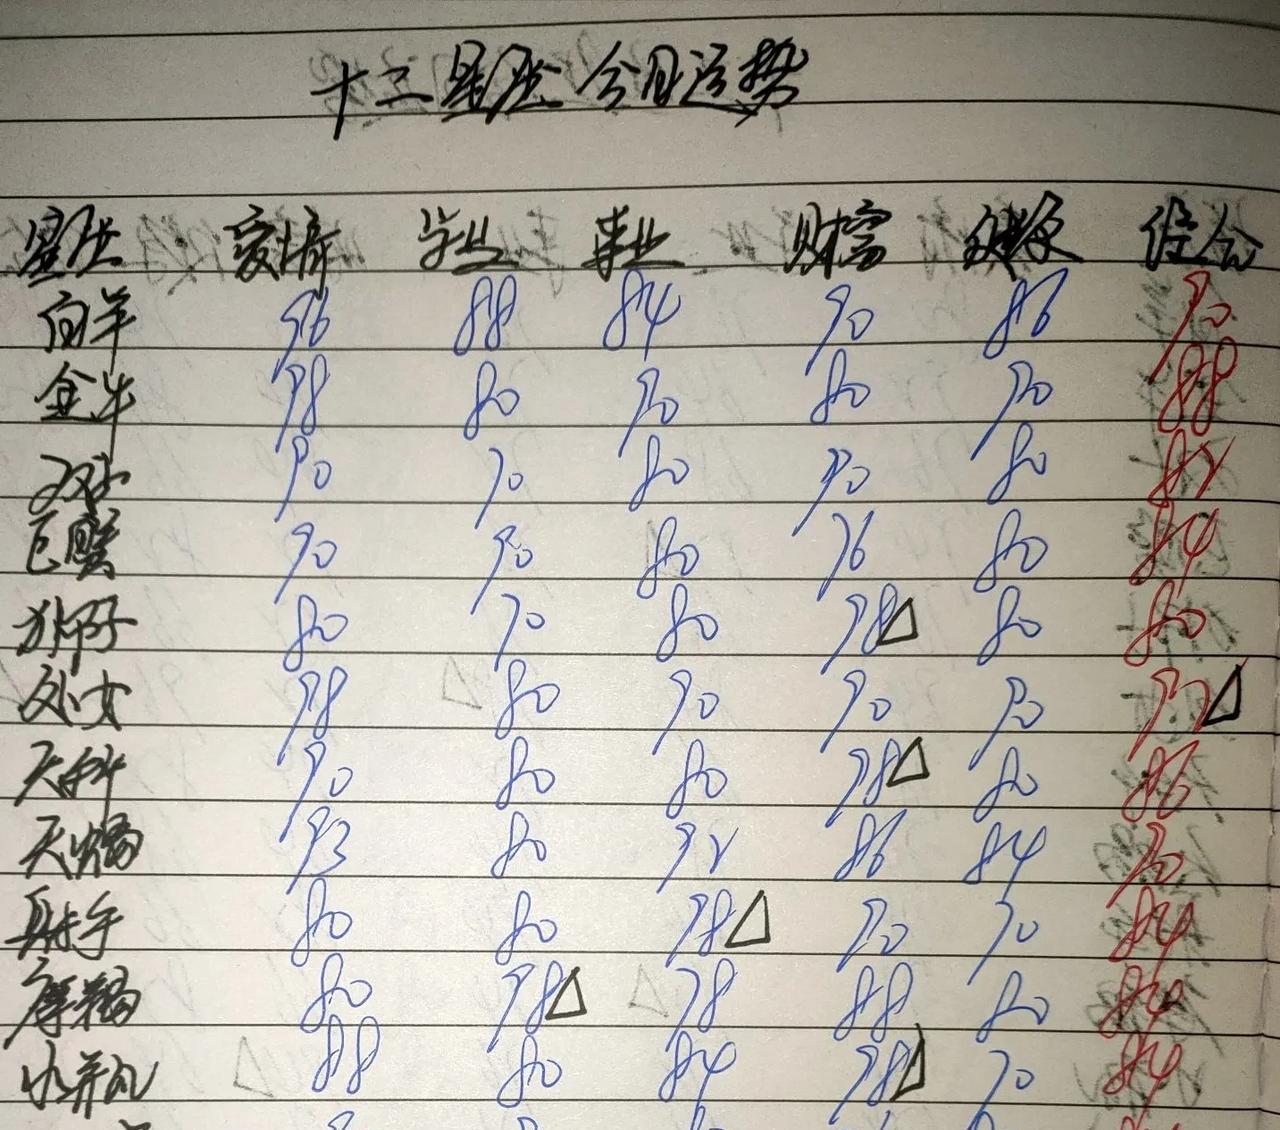 十二星座今日运势
星座 爱情 学业 事业 财富 健康 综合
白羊 96 88 84 90 86 90
金牛 98 80 90 80 90 88
双子 90 70 80 90 80 82
巨蟹 90 90 80 76 80 84
狮子 80 70 80 98△ 80 80
处女 98 80 90 90 90 92△
天秤 90 80 80 98△ 80 86
天蝎 93 80 92 86 84 90
射手 80 80 98△ 90 70 84
摩羯 80 98△ 78 88 80 84
水瓶 88 80 84 98△ 70 84